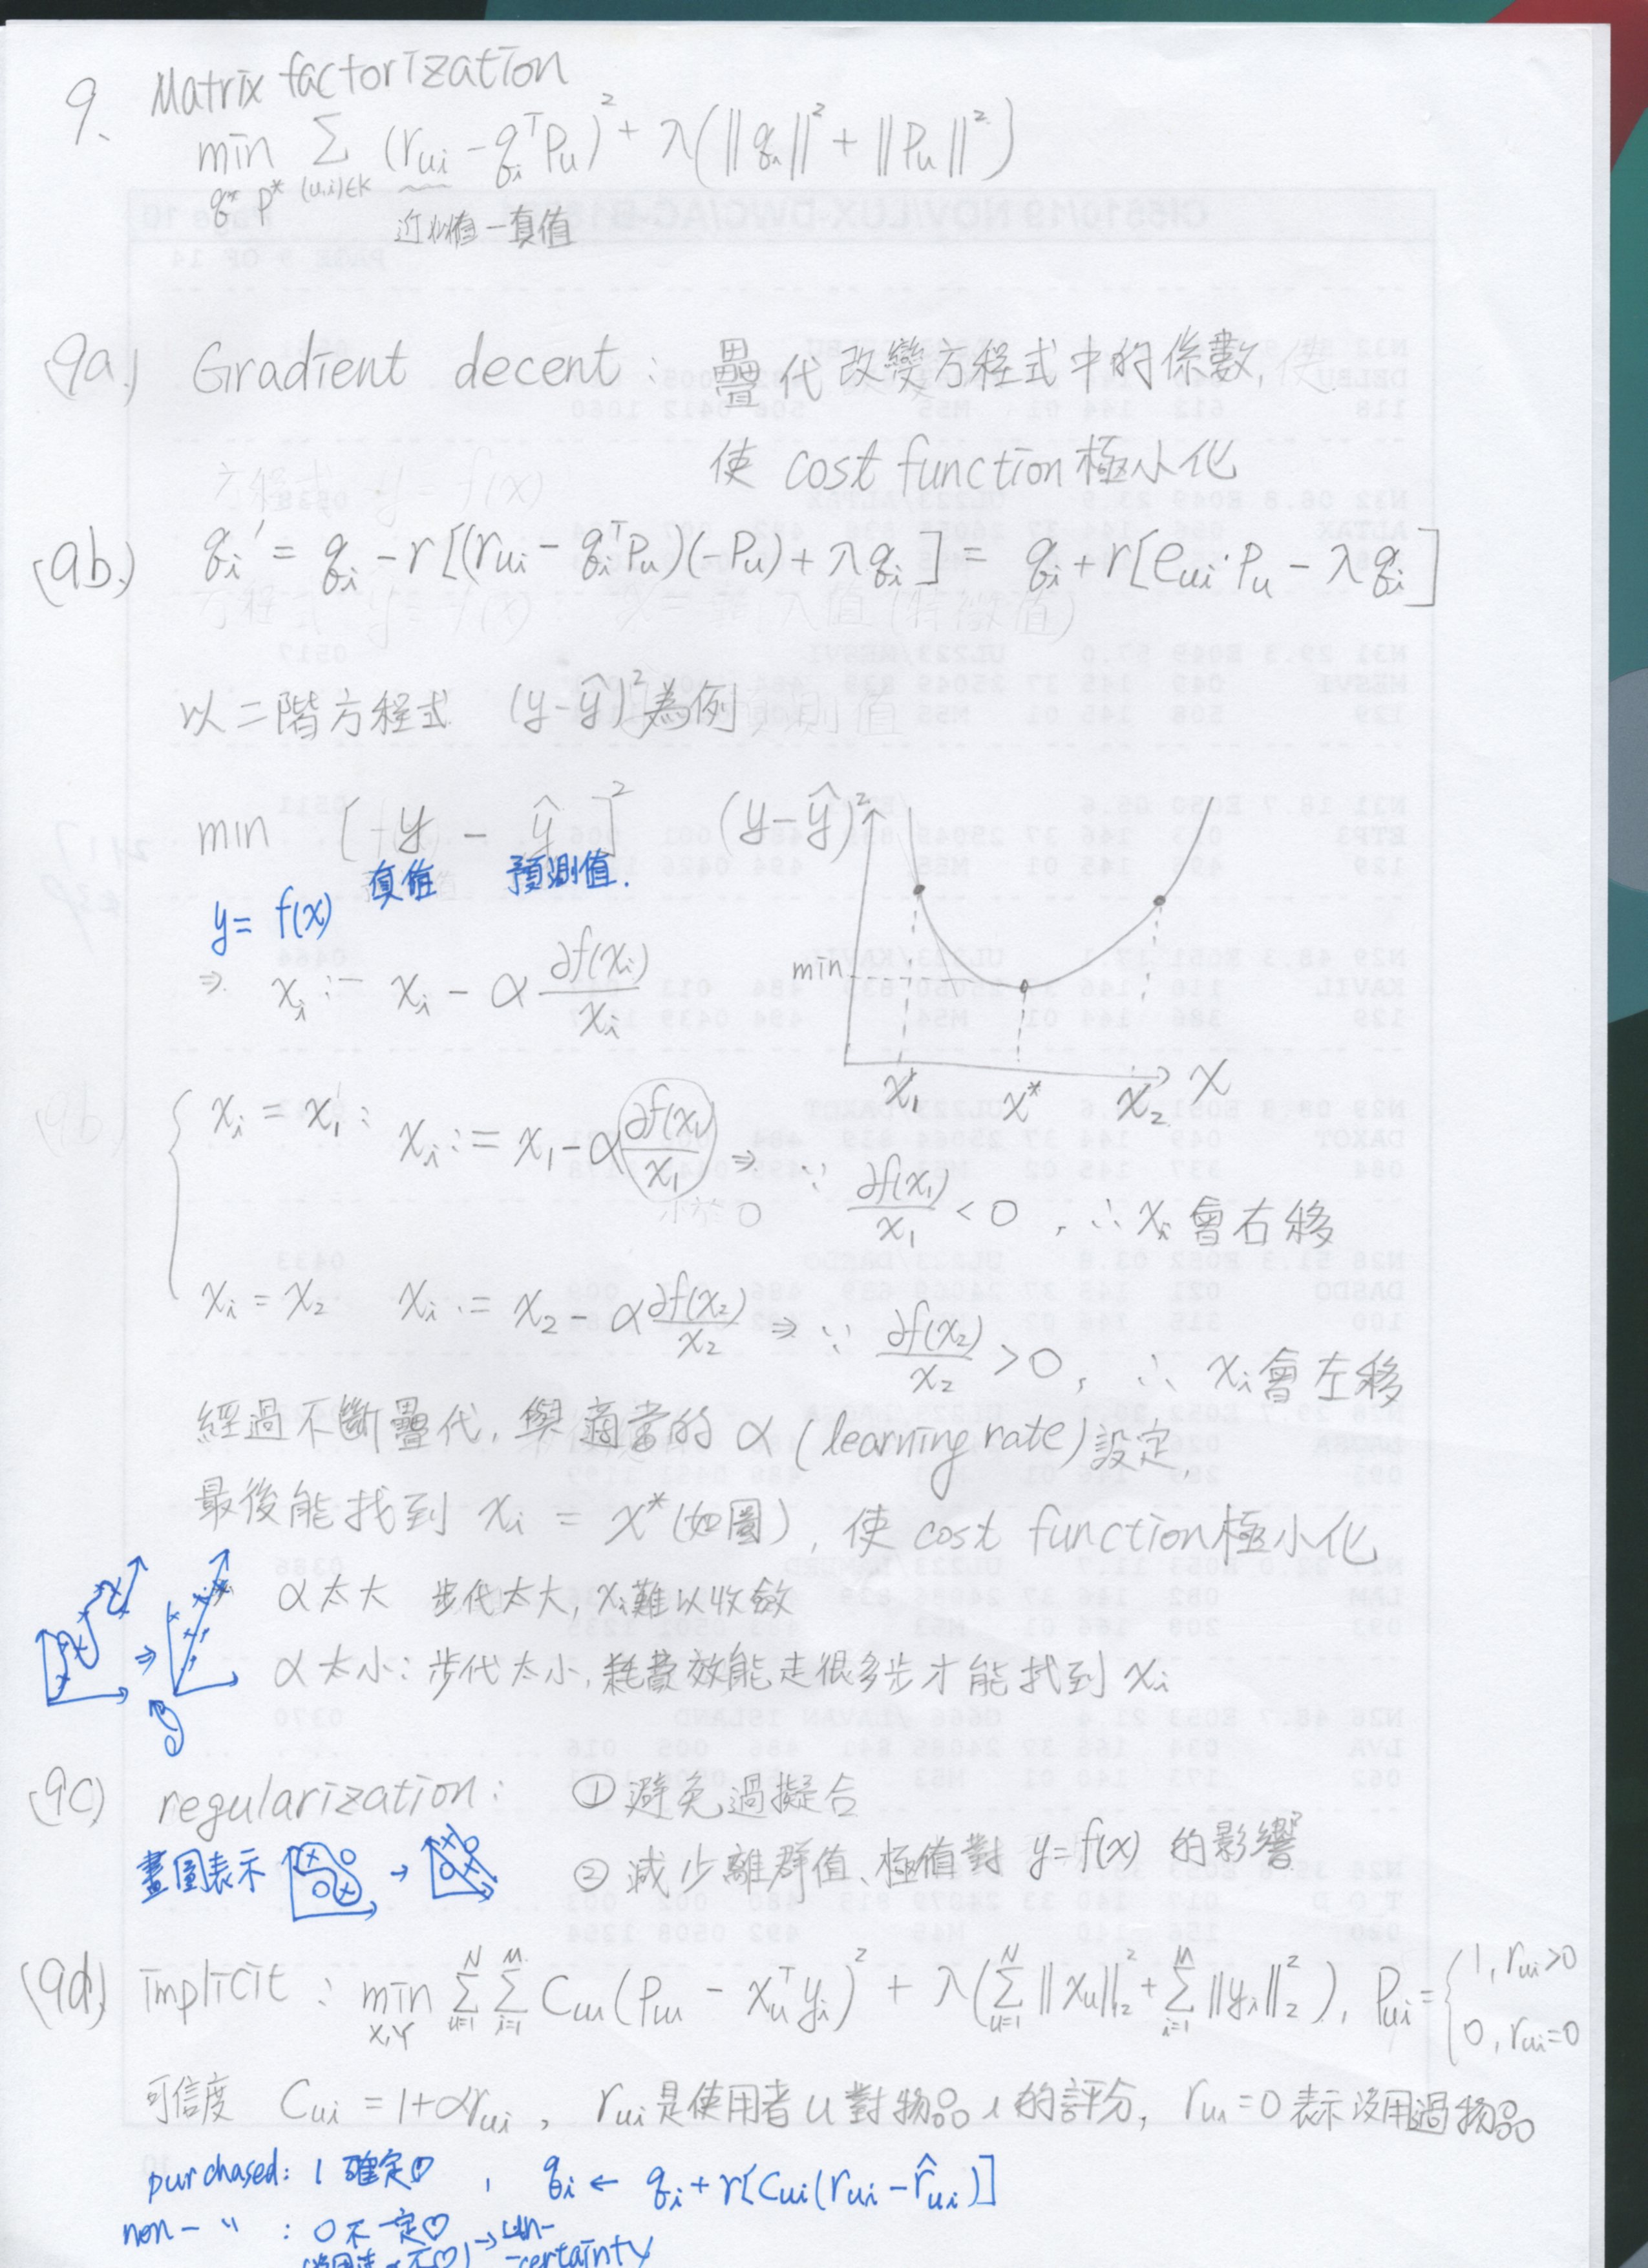 9. Matrix factorization
min Σ (rui - qiᵀPu)² + λ(||qi||² + ||Pu||²)
q* p* (u,i)∈K
近似值-真值
(9a) Gradient decent: 疊代改變方程式中的係數,
使 cost function 極小化
(9b) qi' = qi - r[(rui - qiᵀPu)(-Pu) + λqi] = qi + r[eui·Pu - λqi]
以二階方程式 (y-ŷ)² 為例
min [y - ŷ]² (y-ŷ)²
真值 預測值.
y = f(x)
min
⇒ xi := xi - α ∂f(xi)/xi
x1 x* x2 x
xi = x1: xi := x1 - α ∂f(x1)/x1 ⇒ ∵ ∂f(x1)/x1 < 0, ∴ xi 會右移
小於0
xi = x2 xi := x2 - α ∂f(x2)/x2 ⇒ ∵ ∂f(x2)/x2 > 0, ∴ xi 會左移
經過不斷疊代, 與適當的 α (learning rate) 設定,
最後能找到 xi = x* (如圖), 使 cost function 極小化
α太大 步代太大, xi難以收斂
α太小: 步代太小, 耗費效能走很多步才能找到 xi
(9c) regularization: ① 避免過擬合
畫圖表示 ② 減少離群值、極值對 y=f(x) 的影響
(9d) implicit: min Σ Σ Cui (Pui - xuᵀyi)² + λ(Σ ||xu||₂² + Σ ||yi||₂²), Pui = {1, rui>0
X,Y u=1 N i=1 M 0, rui=0
可信度 Cui = 1+αrui, rui是使用者u對物品i的評分, rui=0表示沒用過物品
purchased: 1 確定♡, qi ← qi + r[Cui(rui - r̂ui)]
non- 〃 : 0 不一定♡ → un-
-certainty